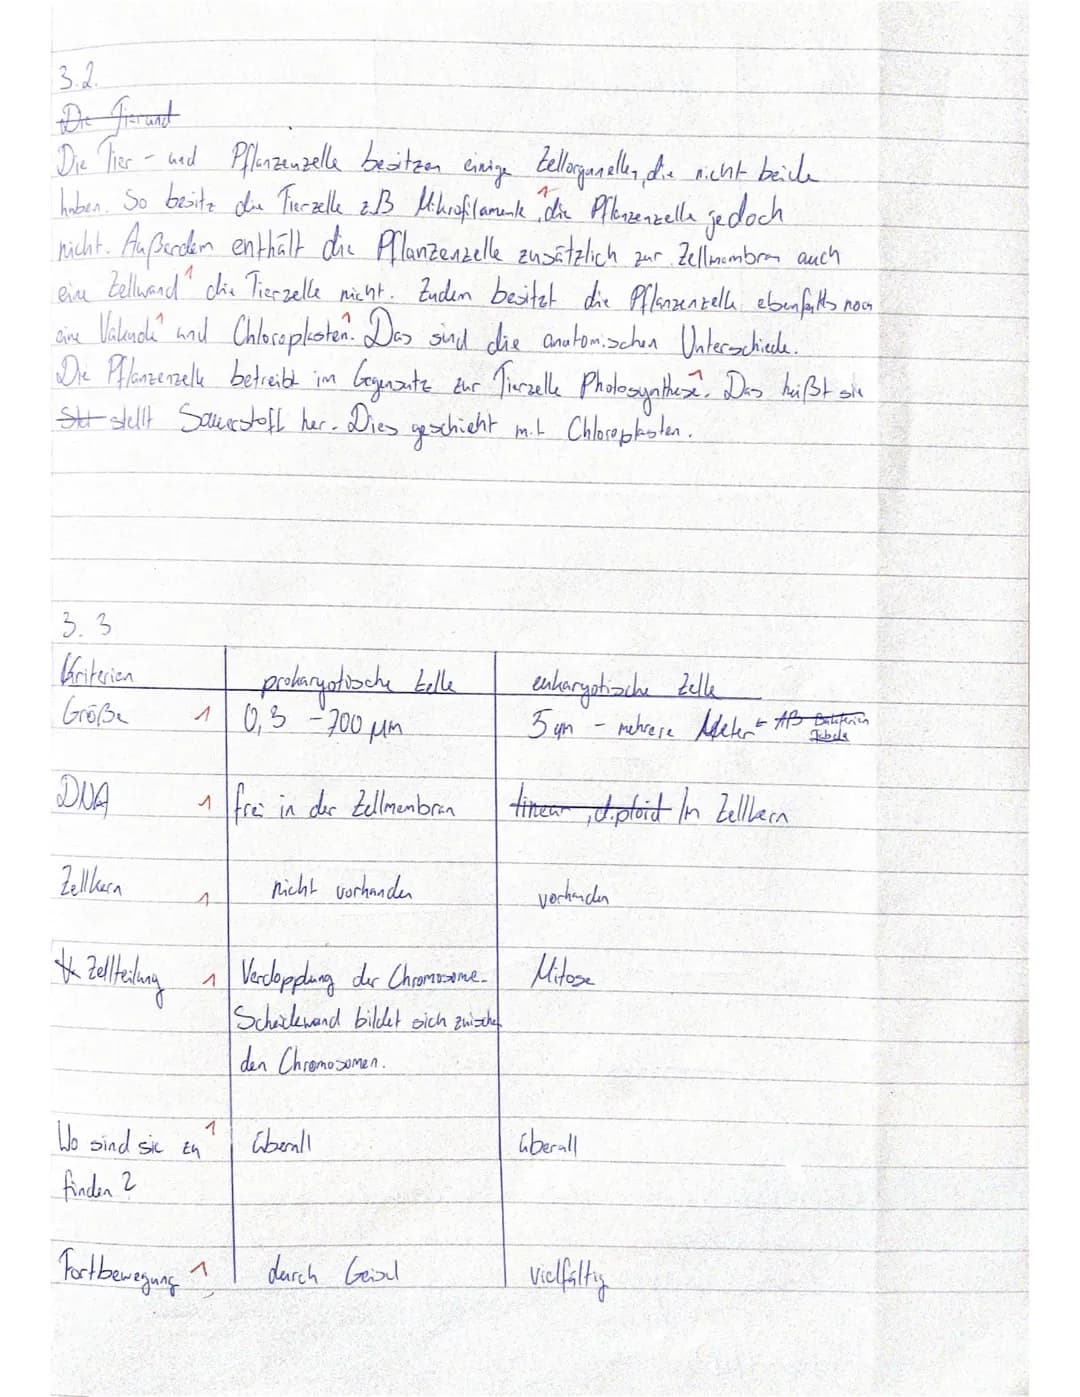 3.2.
Die Tier und
Die Tier- und Pflanzenzelle besitzen einige Zellorganellen, die nicht beide
haben. So besitz die Tierzelle z.B Mikrofilamente 1, die Pflanzenzelle jedoch
nicht. Außerdem enthält die Pflanzenzelle zusätzlich zur Zellmembran auch
eine Zellwand 1 die Tierzelle nicht. Zudem besitzt die Pflanzenzelle ebenfalls noch
eine Vakuole 1 und Chloroplasten 1. Das sind die anatomischen Unterschiede.
Die Pflanzenzelle betreibt im Gegensatz zur Tierzelle Photosynthese 1. Das heißt sie
stellt Sauerstoff her. Dies geschieht mit Chloroplasten.
3.3
Kriterien prokaryotische Zelle eukaryotische Zelle
Größe 1 0,3 - 700 µm 5 µm - mehrere Meter AB Bakterien
Tabelle
DNA 1 frei in der Zellmembran linear, diploid Im Zellkern
Zellkern 1 nicht vorhanden vorhanden
Zellteilung 1 Verdopplung der Chromosome- Mitose
Scheidewand bildet sich zwischen
den Chromosomen.
Wo sind sie zu 1 überall überall
finden?
Fortbewegung 1 durch Geisel vielfältig